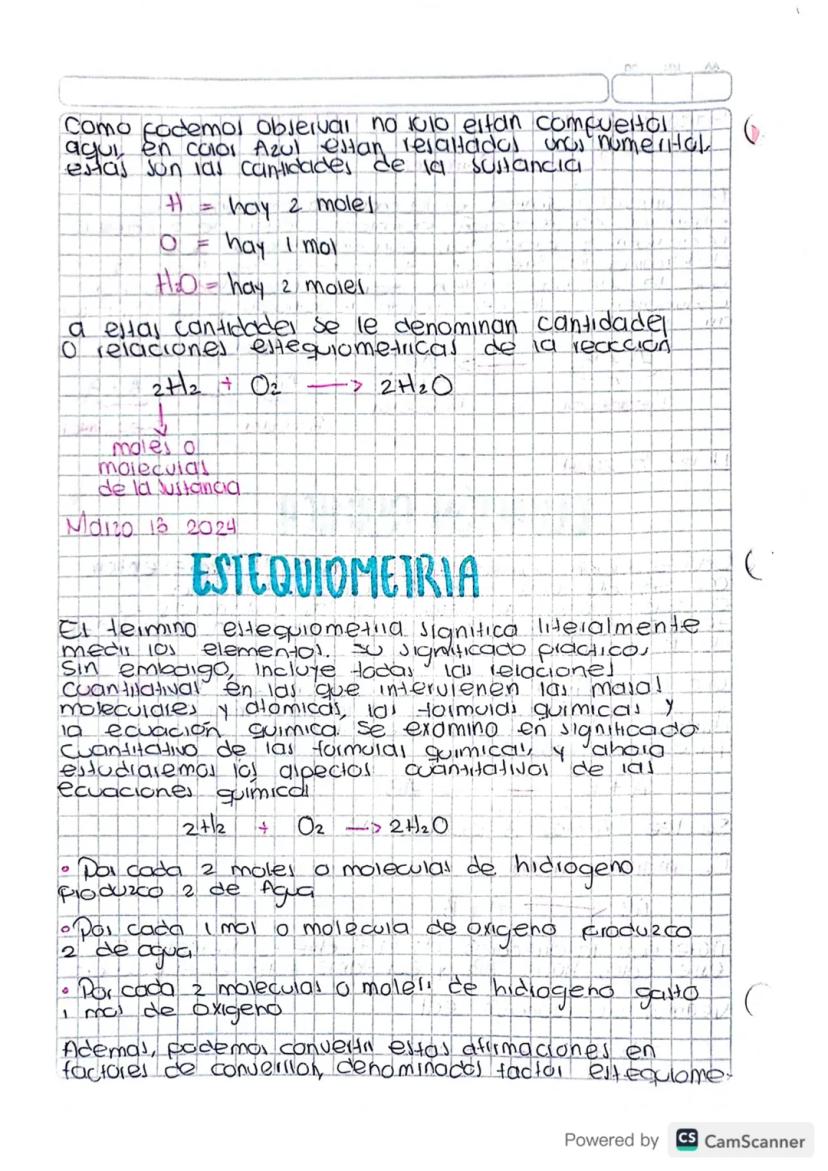 Como podemos observar no solo estan compuestos
aqui, en color Azul estan resaltados unos numeritos.
estas son las cantidades de la sustancia
H = hay 2 moles
O = hay 1 mol
H2O = hay 2 moles
a estas cantidades se le denominan cantidades
O relaciones estequiometricas de la reacción
2H2 + O2 → 2H2O
moles o
moleculas
de la sustancia
Marzo 13 2024
ESTEQUIOMETRIA
El termino estequiometria significa literalmente
medir los elementos. su significado practico,
Sin embargo, incluye todas las relaciones
cuantitativas en las que intervienen las masas
moleculares y atómicas, las formulas quimicas y
la ecuación quimica. Se examino en significado
cuantitativo de las formulas quimicas, y ahora
estudiaremos los aspectos cuantitativos de las
ecuaciones quimicas
2H2 + O2 → 2H2O
• Por cada 2 moles o moleculas de hidrogeno
produzco 2 de Agua
• Por cada 1 mol o molecula de oxigeno produzco
2 de agua
• Por cada 2 moleculas o moles de hidrogeno gasto
1 mol de oxigeno
Ademas, podemos convertir estas afirmaciones en
factores de conversion, denominados factor estequiome-
Powered by CS CamScanner